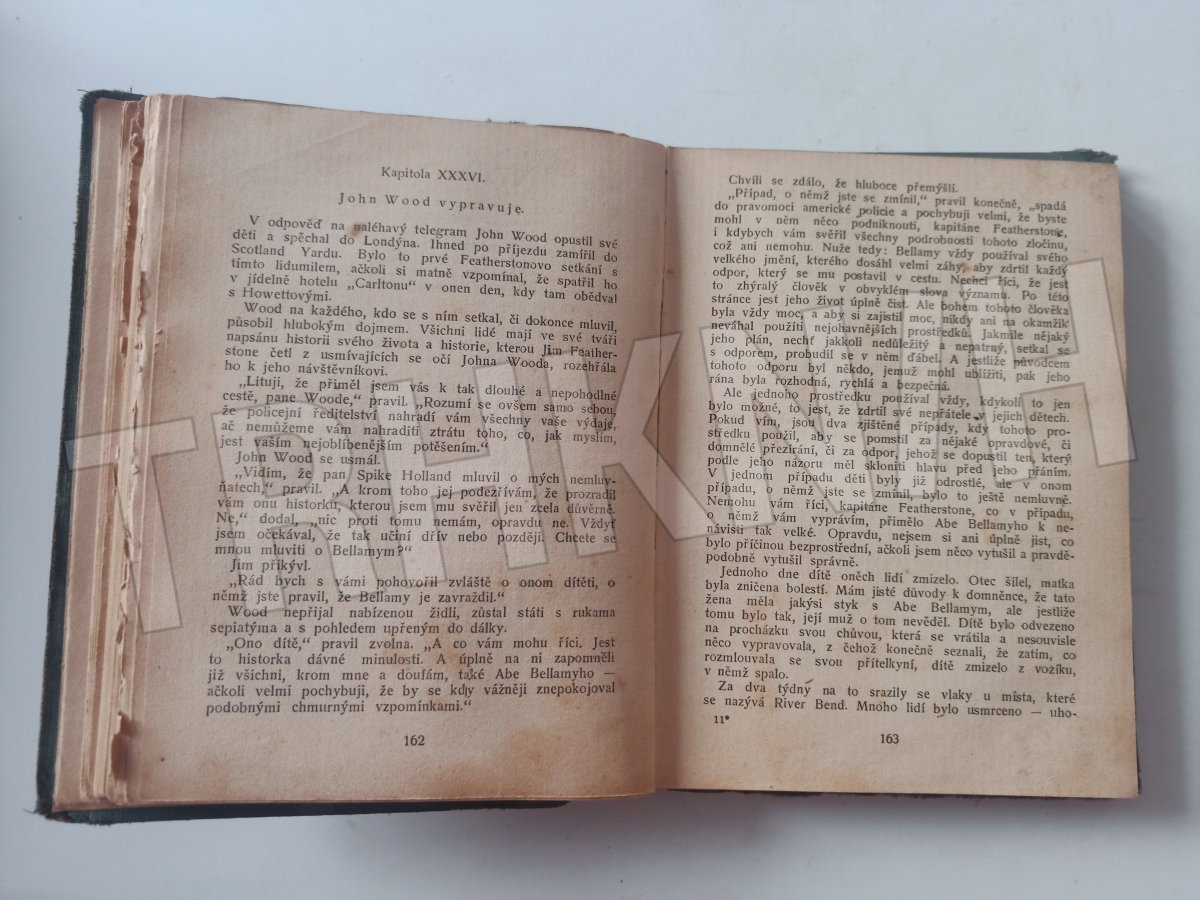 Kapitola XXXVI.
John Wood vypravuje.
V odpověď na naléhavý telegram John Wood opustil své
děti a spěchal do Londýna. Ihned po příjezdu zamířil do
Scotland Yardu. Bylo to prvé Featherstonovo setkání s
tímto lidumilem, ačkoli si matně vzpomínal, že spatřil ho
v jídelně hotelu „Carltonu“ v onen den, kdy tam obědval
s Howettovými.
Wood na každého, kdo se s ním setkal, či dokonce mluvil,
působil hlubokým dojmem. Všichni lidé mají ve své tváři
napsánu historii svého života a historie, kterou Jim Feather-
stone četl z usmívajících se očí Johna Wooda, rozehřála
ho k jeho návštěvníkovi.
„Lituji, že přiměl jsem vás k tak dlouhé a nepohodlné
cestě, pane Woode,“ pravil. „Rozumí se ovšem samo sebou,
že policejní ředitelství nahradí vám všechny vaše výdaje,
ač nemůžeme vám nahraditi ztrátu toho, co, jak myslím,
jest vaším nejoblíbenějším potěšením.“
John Wood se usmál.
„Vidím, že pan Spike Holland mluvil o mých nemluv-
ňatech,“ pravil. „A krom toho jej podezřívám, že prozradil
vám onu historku, kterou jsem mu svěřil jen zcela důvěrně.
Ne,“ dodal, „nic proti tomu nemám, opravdu ne. Vždyť
jsem očekával, že tak učiní dřív nebo později. Chcete se
mnou mluviti o Bellamym?“
Jim přikývl.
„Rád bych s vámi pohovořil zvláště o onom dítěti, o
němž jste pravil, že Bellamy je zavraždil.“
Wood nepřijal nabízenou židli, zůstal státi s rukama
sepiatýma a s pohledem upřeným do dálky.
„Ono dítě,“ pravil zvolna. „A co vám mohu říci. Jest
to historka dávné minulosti. A úplně na ni zapomněli
již všichni, krom mne a doufám, také Abe Bellamyho —
ačkoli velmi pochybuji, že by se kdy vážněji znepokojoval
podobnými chmurnými vzpomínkami.“
162
Chvíli se zdálo, že hluboce přemýšlí.
„Případ, o němž jste se zmínil,“ pravil konečně, „spadá
do pravomoci americké policie a pochybuji velmi, že byste
mohl v něm něco podniknouti, kapitáne Featherstone,
i kdybych vám svěřil všechny podrobnosti tohoto zločinu,
což ani nemohu. Nuže tedy: Bellamy vždy používal svého
velkého jmění, kterého dosáhl velmi záhy, aby zdrtil každý
odpor, který se mu postavil v cestu. Nechci říci, že jest
to zhýralý člověk v obvyklém slova významu. Po této
stránce jest jeho život úplně čist. Ale bohem tohoto člověka
byla vždy moc, a aby si zajistil moc, nikdy ani na okamžik
neváhal použíti nejohavnějších prostředků. Jakmile nějaký
jeho plán, nechť jakkoli nedůležitý a nepatrný, setkal se
s odporem, probudil se v něm ďábel. A jestliže původcem
tohoto odporu byl někdo, jemuž mohl ublížiti, pak jeho
rána byla rozhodná, rychlá a bezpečná.
Ale jednoho prostředku používal vždy, kdykoli to jen
bylo možné, to jest, že zdrtil své nepřátele v jejich dětech.
Pokud vím, jsou dva zjištěné případy, kdy tohoto pro-
středku použil, aby se pomstil za nějaké opravdové, či
domnělé přezírání, či za odpor, jehož se dopustil ten, který
podle jeho názoru měl skloniti hlavu před jeho přáním.
V jednom případu děti byly již odrostlé, ale v onom
případu, o němž jste se zmínil, bylo to ještě nemluvně.
Nemohu vám říci, kapitáne Featherstone, co v případu,
o němž vám vyprávím, přimělo Abe Bellamyho k ne-
návisti tak velké. Opravdu, nejsem si ani úplně jist, co
bylo příčinou bezprostřední, ačkoli jsem něco vytušil a pravdě-
podobně vytušil správně.
Jednoho dne dítě oněch lidí zmizelo. Otec šílel, matka
byla zničena bolestí. Mám jisté důvody k domněnce, že tato
žena měla jakýsi styk s Abe Bellamym, ale jestliže
tomu bylo tak, její muž o tom nevěděl. Dítě bylo odvezeno
na procházku svou chůvou, která se vrátila a nesouvisle
něco vypravovala, z čehož konečně seznali, že zatím, co
rozmlouvala se svou přítelkyní, dítě zmizelo z vozíku,
v němž spalo.
Za dva týdny na to srazily se vlaky u místa, které
se nazývá River Bend. Mnoho lidí bylo usmrceno — uho-
11*
163
TRHKNIH